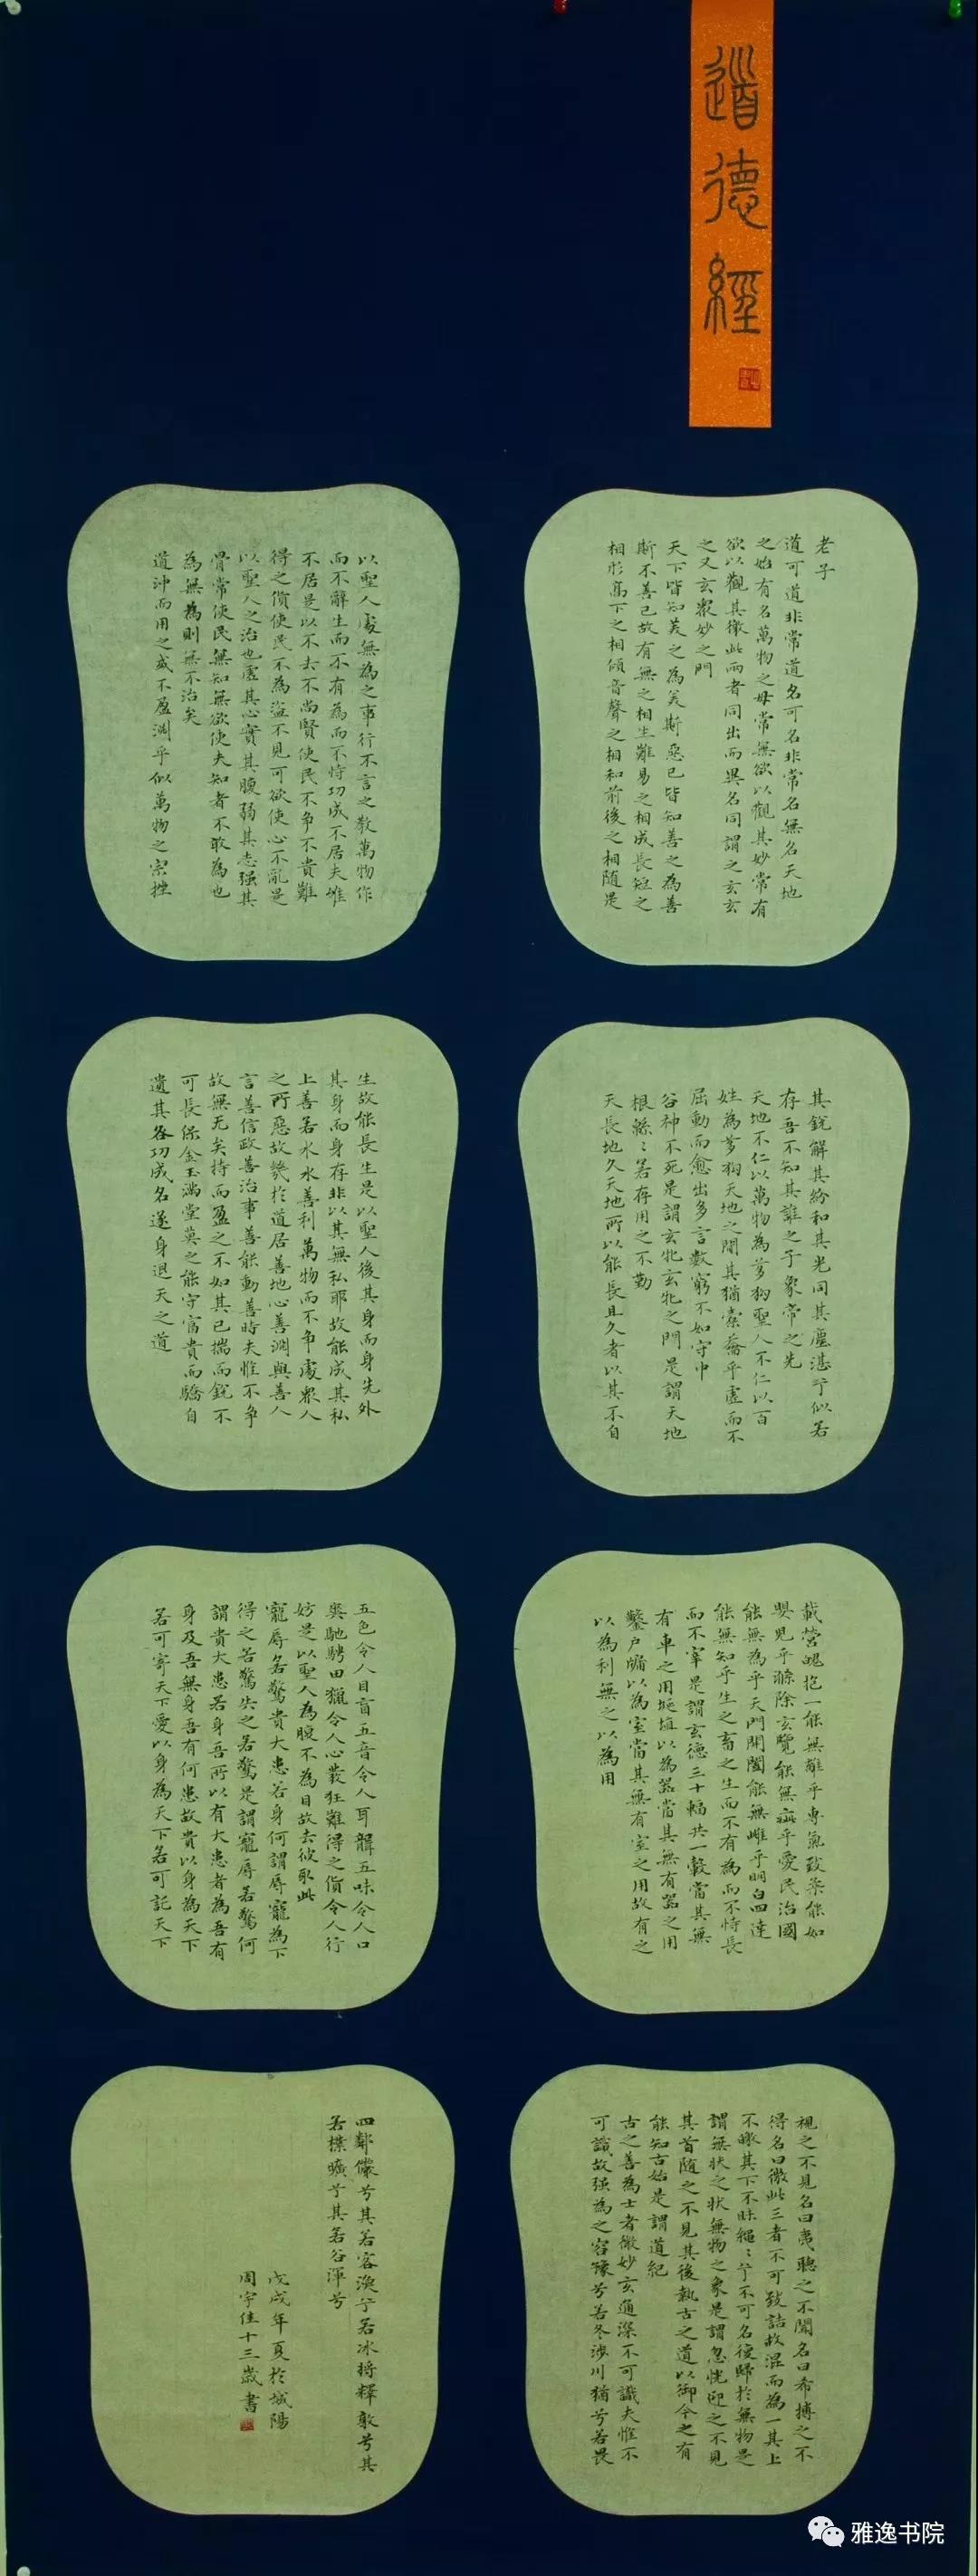 道德經
老子
道可道非常道名可名非常名無名天地
之始有名萬物之母常無欲以觀其妙常有
欲以觀其徼此兩者同出而異名同謂之玄玄
之又玄衆妙之門
天下皆知美之為美斯惡已皆知善之為善
斯不善已故有無之相生難易之相成長短之
相形高下之相傾音聲之相和前後之相随是
以聖人處無為之事行不言之教萬物作
而不辭生而不有為而不恃功成不居夫惟
不居是以不去不尚賢使民不争不貴難
得之貨使民不為盗不見可欲使心不亂是
以聖人之治也虛其心實其腹弱其志强其
骨常使民無知無欲使夫知者不敢為也
為無為則無不治矣
道沖而用之或不盈淵乎似萬物之宗挫
其銳解其紛和其光同其塵湛兮似若
存吾不知其誰之子象帝之先
天地不仁以萬物為芻狗聖人不仁以百
姓為芻狗天地之間其猶橐籥乎虛而不
屈動而愈出多言數窮不如守中
谷神不死是謂玄牝玄牝之門是謂天地
根綿〻若存用之不勤
天長地久天地所以能長且久者以其不自
生故能長生是以聖人後其身而身先外
其身而身存非以其無私耶故能成其私
上善若水水善利萬物而不争處衆人
之所惡故幾於道居善地心善淵與善人
言善信政善治事善能動善時夫惟不争
故無尤矣持而盈之不如其已揣而銳不
可長保金玉滿堂莫之能守富貴而驕自
遺其咎功成名遂身退天之道
載營魄抱一能無離乎専氣致柔能如
嬰兒乎滌除玄覽能無疵乎愛民治國
能無為乎天門開闔能無雌乎明白四達
能無知乎生之畜之生而不有為而不恃長
而不宰是謂玄德三十輻共一轂當其無
有車之用埏埴以為器當其無有器之用
鑿户牖以為室當其無有室之用故有之
以為利無之以為用
五色令人目盲五音令人耳聾五味令人口
爽馳騁田獵令人心發狂難得之貨令人行
妨是以聖人為腹不為目故去彼取此
寵辱若驚貴大患若身何謂辱寵為下
得之若驚失之若驚是謂寵辱若驚何
謂貴大患若身吾所以有大患者為吾有
身及吾無身吾有何患故貴以身為天下
若可寄天下愛以身為天下若可託天下
視之不見名曰夷聽之不聞名曰希搏之不
得名曰微此三者不可致詰故混而為一其上
不皦其下不昧繩〻兮不可名復歸於無物是
謂無狀之狀無物之象是謂忽恍迎之不見
其首随之不見其後執古之道以御今之有
能知古始是謂道紀
古之善為士者微妙玄通深不可識夫惟不
可識故强為之容豫兮若冬涉川猶兮若畏
四鄰儼兮其若客渙兮若冰将釋敦兮其
若樸曠兮其若谷渾兮
戊戌年夏於城陽
周宇佳十三歲書
雅逸书院